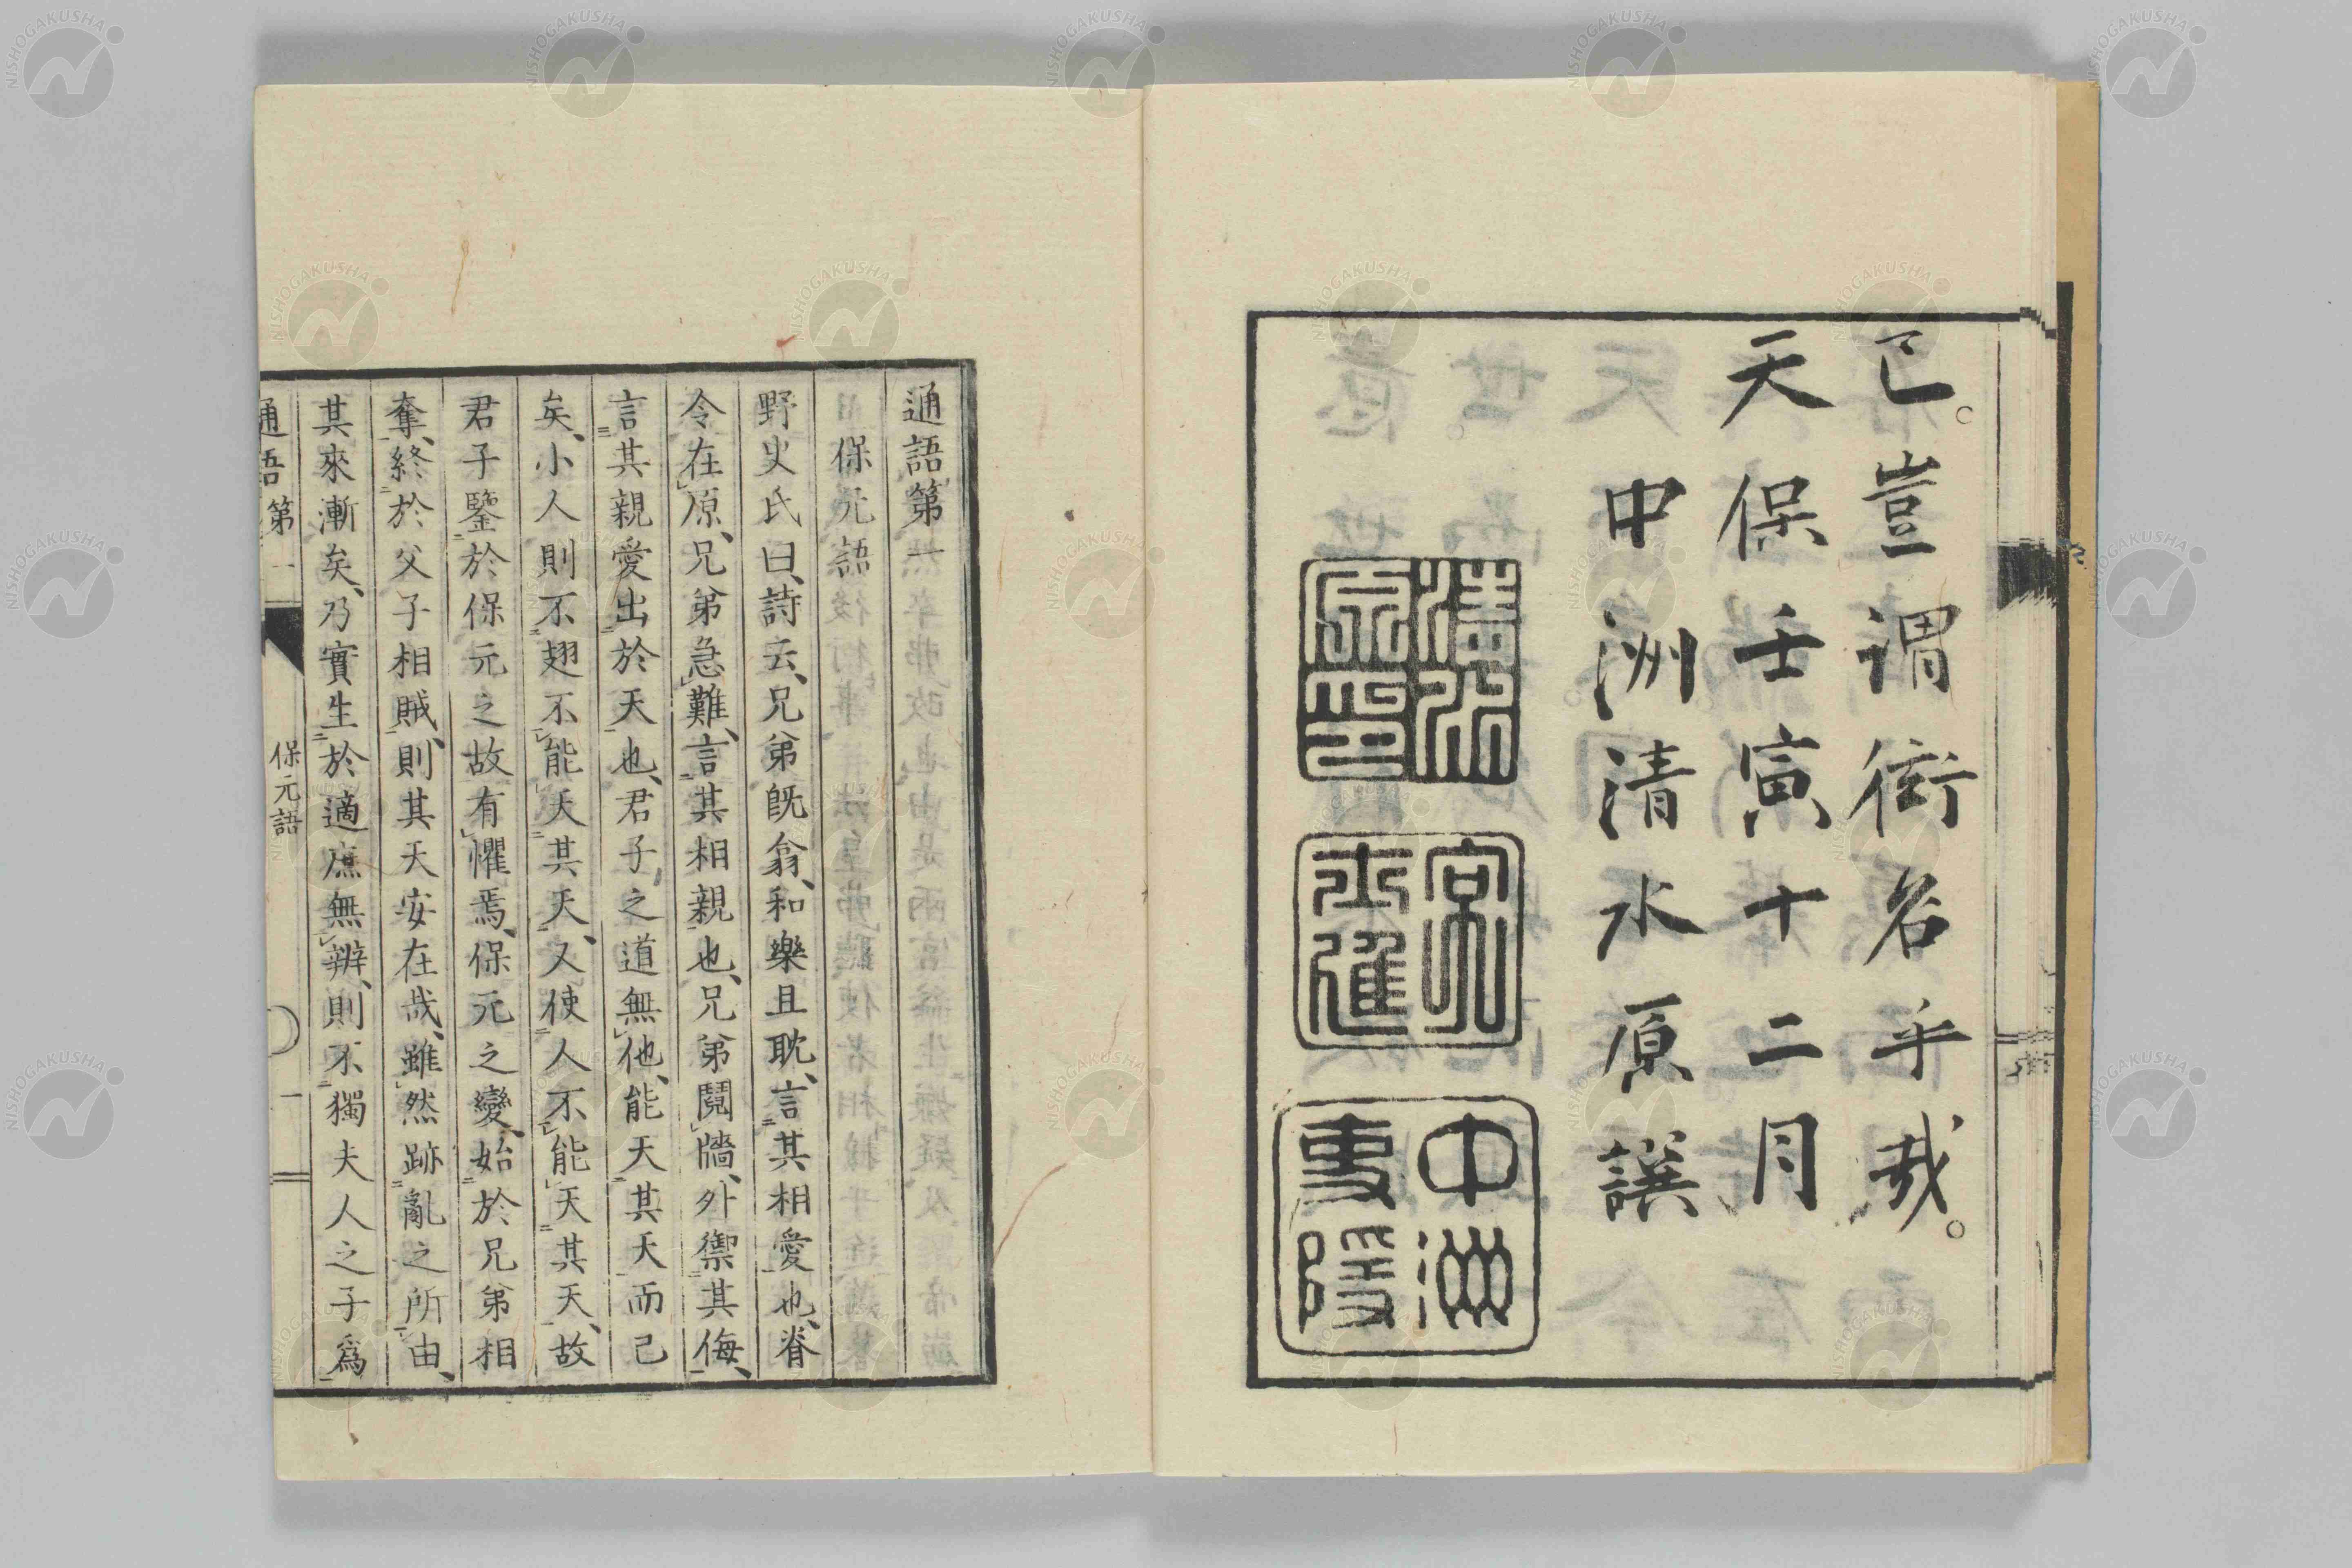 已。豈謂衒名乎哉。
天保壬寅十二月
中洲清水原譔
清水原印
中洲書隱
通語第一
保元語
野史氏曰、詩云、兄弟既翕、和樂且耽、言其相愛也、脊
令在原、兄弟急難、言其相親也、兄弟鬩牆、外禦其侮、
言其親愛出於天也、君子之道無他、能天其天而已
矣、小人則不翅不能天其天、又使人不能天其天、故
君子鑒於保元之故有懼焉、保元之變、始於兄弟相
奪、終於父子相賊、則其天安在哉、雖然跡亂之所由、
其來漸矣、乃實生於適庶無辨、則不獨夫人之子爲
通語第一
保元語
一
NISHOGAKUSHA